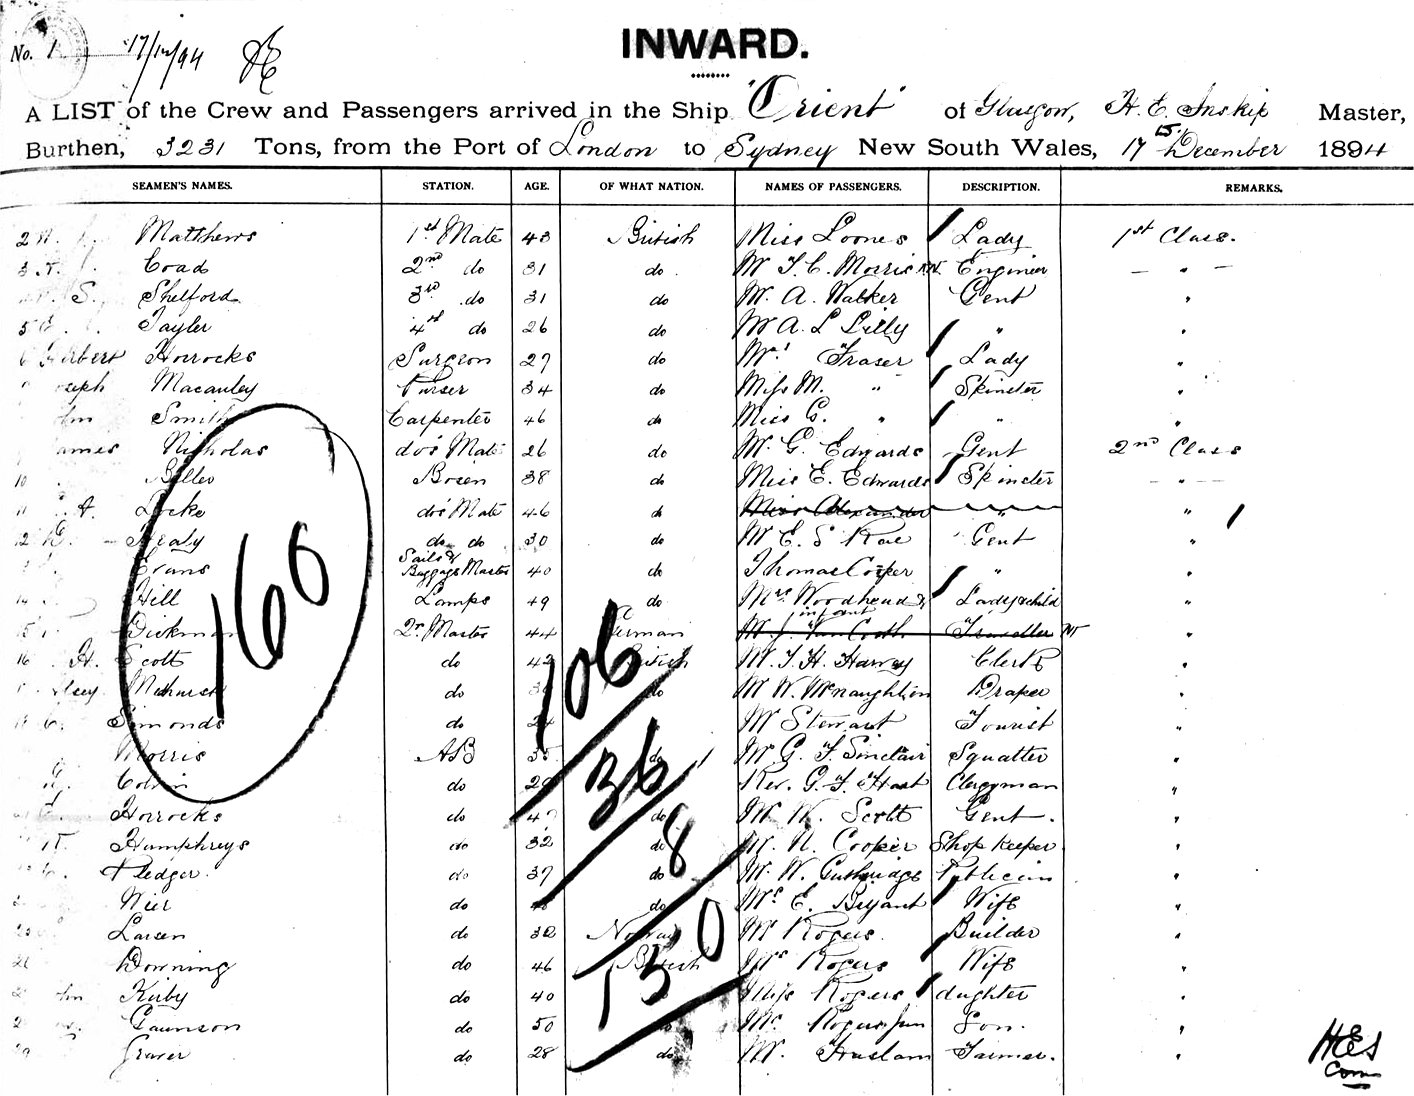 No. 1 17/12/94
INWARD.
A LIST of the Crew and Passengers arrived in the Ship "Orient" of Glasgow, H. E. Inskip Master,
Burthen, 3231 Tons, from the Port of London to Sydney New South Wales, 17 December 1894
SEAMEN'S NAMES. STATION. AGE. OF WHAT NATION. NAMES OF PASSENGERS. DESCRIPTION. REMARKS.
2 Matthews 1st Mate 43 British Miss Loones Lady 1st Class.
3 Coad 2nd do 31 do. Mr T. C. Morris Engineer — " —
S. Shelford 3rd do 31 do Mr. A. Walker Gent "
5 Tayler 4th do 26 do Mr A. L Lilly " "
Horrocks Surgeon 27 do Mrs Fraser Lady "
Joseph Macauley Purser 34 do Miss M. " Spinster "
John Smith Carpenter 46 do Miss G. " " "
James Nicholas do's Mate 26 do Mr. G. Edwards Gent 2nd Class
10 Bosen 38 do Miss E. Edwards Spinster — " —
11 A. Locke do's Mate 46 do Miss Alexander " "
12 Healy do do 30 do Mr E. S Rae Gent "
Evans Sails & Baggage Master 40 do Thomas Cooper " "
14 Hill Lamps 49 do Mrs Woodhead & infant Lady & child "
15 Dickman Qr. Master 44 German Traveller "
16 H. Scott do 42 British Mr. T. H. Harvey Clerk "
do do Mr W. McNaughton Draper "
Simonds do 24 Mr Stewart Tourist "
Morris AB 35 do Mr G. F. Sinclair Squatter "
Colvin do 29 Rev. G. F. Hast Clergyman "
Horrocks do 42 do Mr W. Scott Gent. "
Humphreys do 32 do Mr. N. Cooper Shop Keeper "
Pledger. do 37 do Mr. W. Guthridge Publican "
Weir do do Mrs E. Bryant Wife "
Larsen do 32 Norway Mr Rogers. Builder "
Downing do 46 British Mrs Rogers Wife "
John Kirby do 40 Miss Rogers daughter "
Gaunson do 50 Mr Rogers Jun Son. "
do 28 do Mr. Haslam Farmer. "
160
106
36
8
150
HES
Com